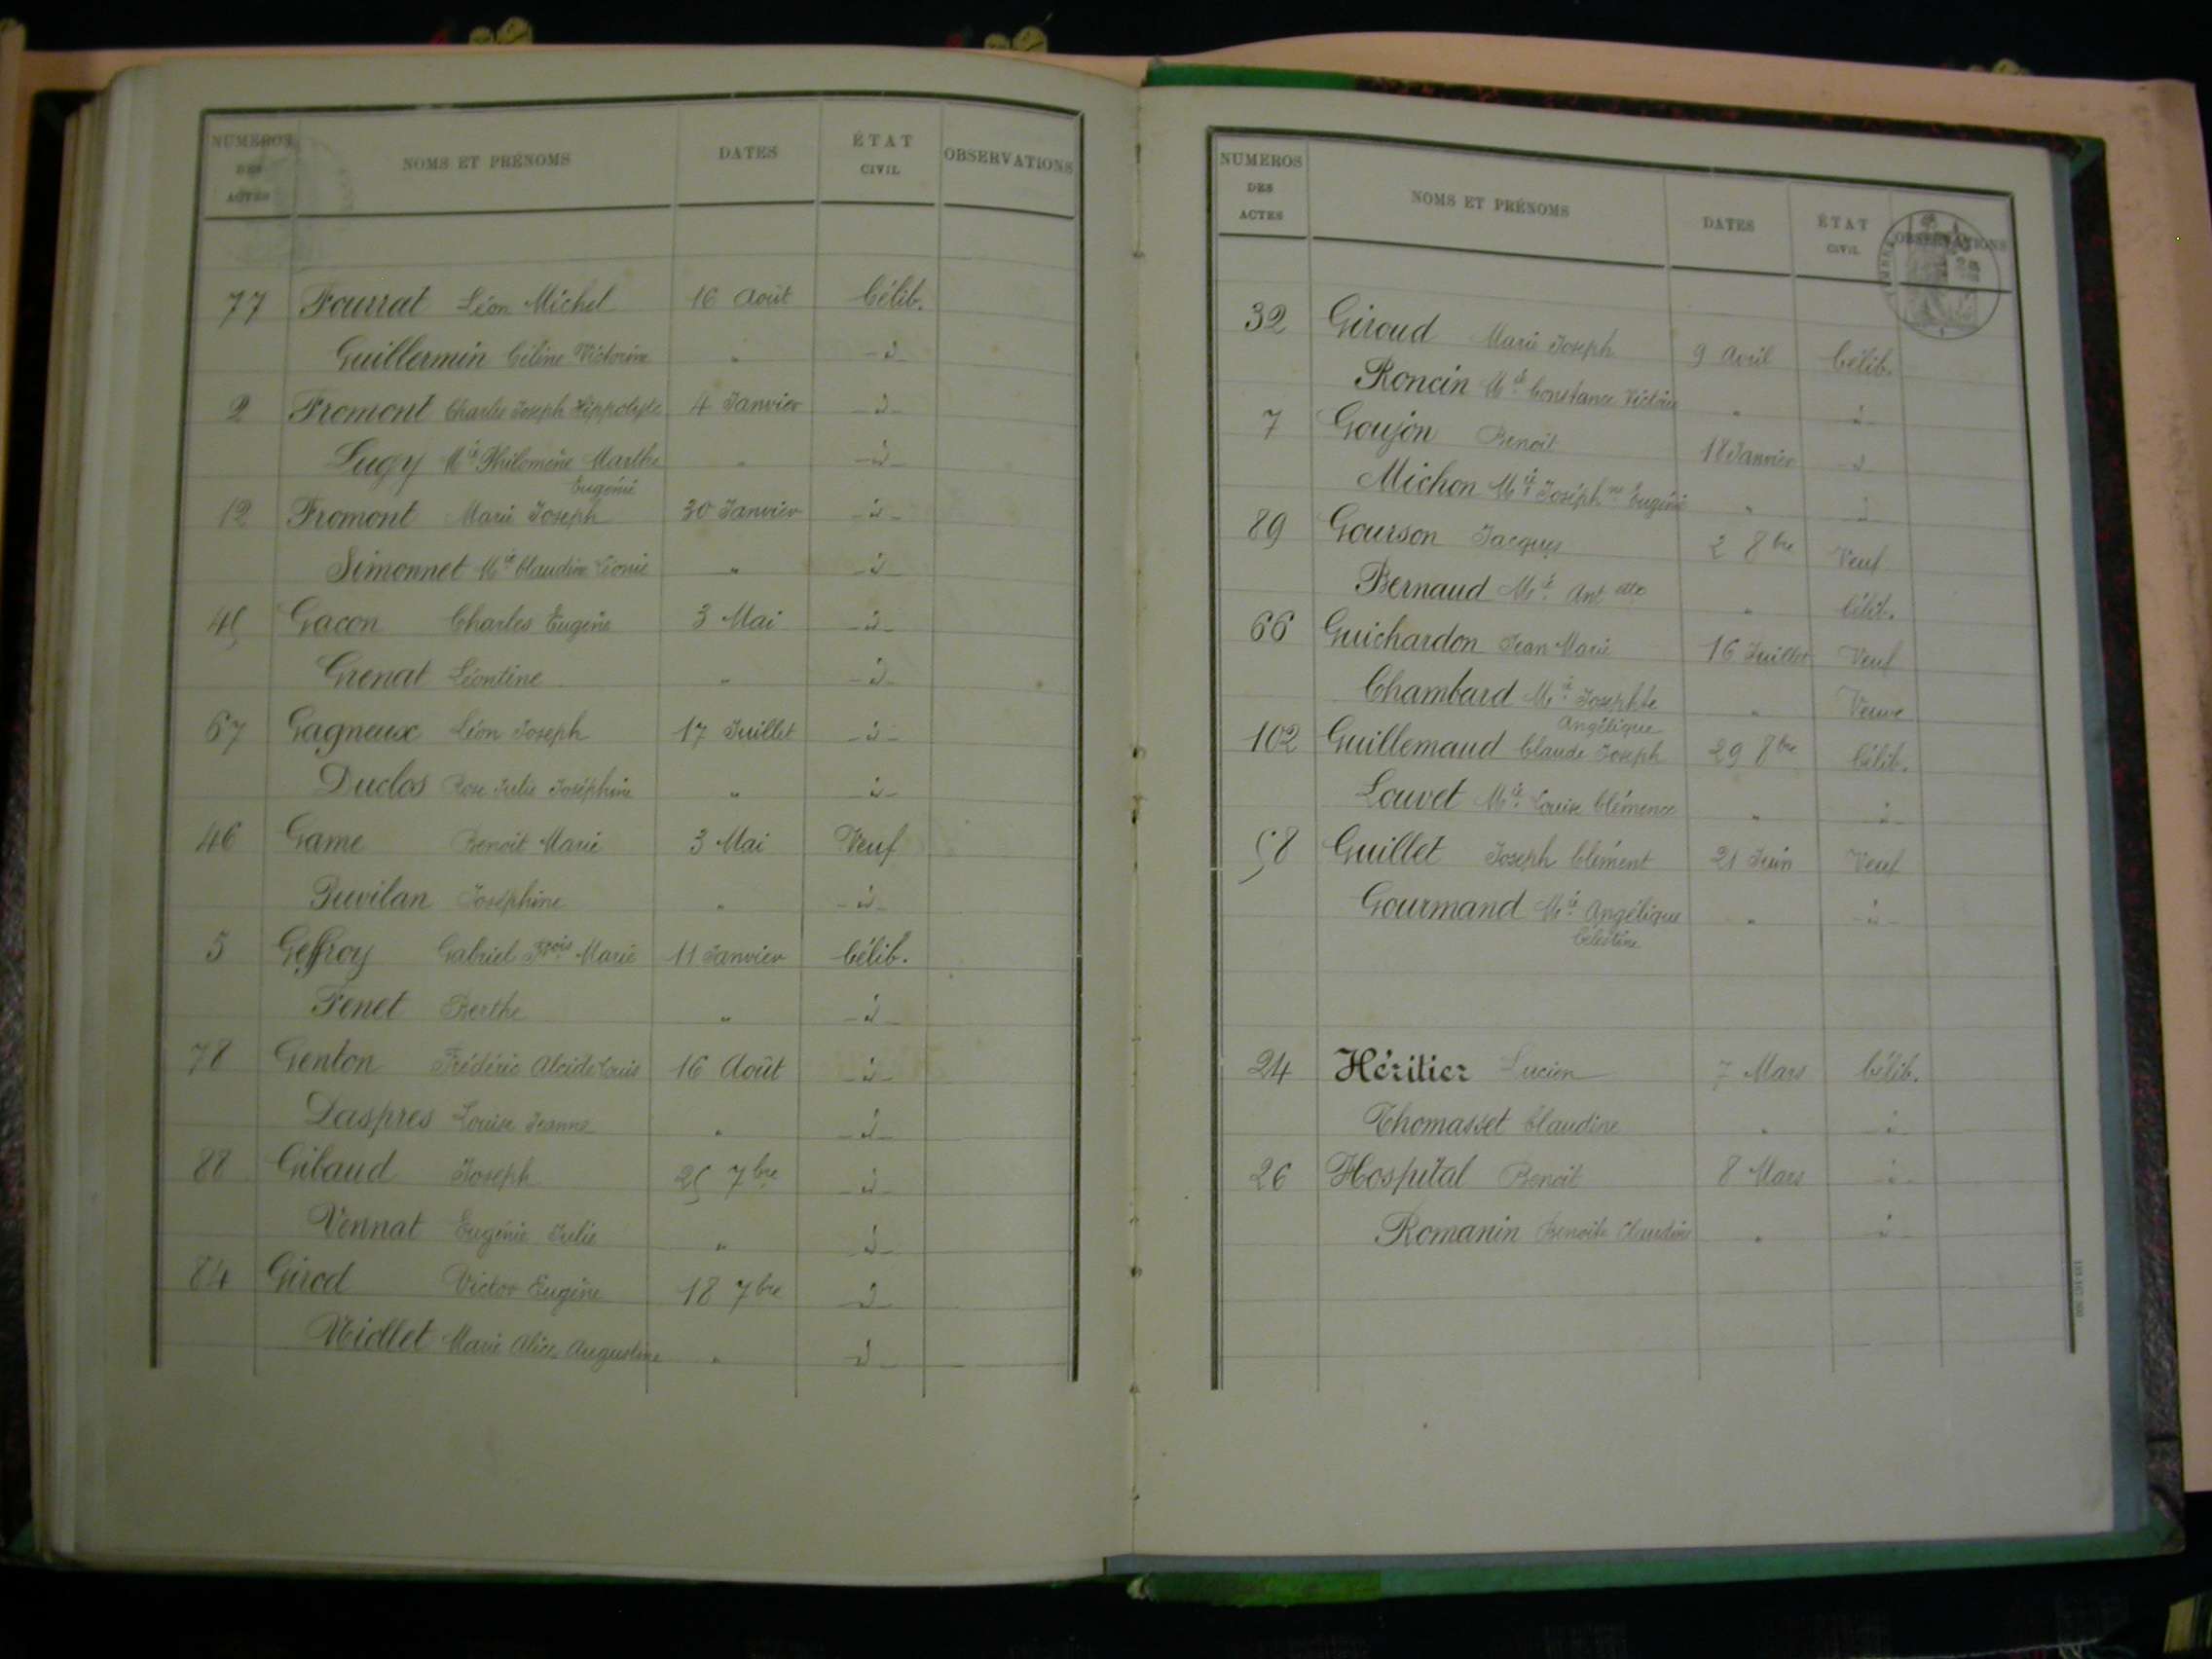 NUMEROS DES ACTES NOMS ET PRÉNOMS DATES ÉTAT CIVIL OBSERVATIONS
77 Fourrat Léon Michel 16 Août Célib.
Guillermin Céline Victorine " -d-
2 Fromont Charles Joseph Hippolyte 4 Janvier -d-
Lugy Mie Philomène Marthe Eugénie " -d-
12 Fromont Marie Joseph 30 Janvier -d-
Simonnet Mie Claudine Léonie " -d-
45 Gacon Charles Eugène 3 Mai -d-
Grenat Léontine " -d-
67 Gagneux Léon Joseph 17 Juillet -d-
Duclos Rose Julie Joséphine " -d-
46 Game Benoit Marie 3 Mai Veuf
Puvilan Joséphine " -d-
5 Geffroy Gabriel Fçois Marie 11 Janvier Célib.
Fenet Berthe " -d-
78 Genton Frédéric Alcide Louis 16 Août -d-
Laspres Louise Jeanne " -d-
88 Gibaud Joseph 25 7bre -d-
Vennat Eugénie Julie " -d-
84 Girod Victor Eugène 18 7bre -d-
Midlet Marie Alice Augustine " -d-
NUMEROS DES ACTES NOMS ET PRÉNOMS DATES ÉTAT CIVIL OBSERVATIONS
32 Giroud Marie Joseph 9 Avril Célib.
Roncin Mie Constance Victoire " d-
7 Goujon Benoît 18 Janvier -d
Michon Mie Joséphne Eugénie " d
89 Gourson Jacques 2 8bre Veuf
Bernaud Mie Antette " Célib.
66 Guichardon Jean Marie 16 Juillet Veuf
Chambard Mie Josephte Angélique " Veuve
102 Guillemaud Claude Joseph 29 8bre Célib.
Louvet Mie Louise Clémence " d-
58 Guillet Joseph Clément 21 Juin Veuf
Gourmand Mie Angélique Célestine " -d-
24 Héritier Lucien 7 Mars Célib.
Thomasset Claudine " d-
26 Hospital Benoit 8 Mars d-
Romanin Benoite Claudine " -d-